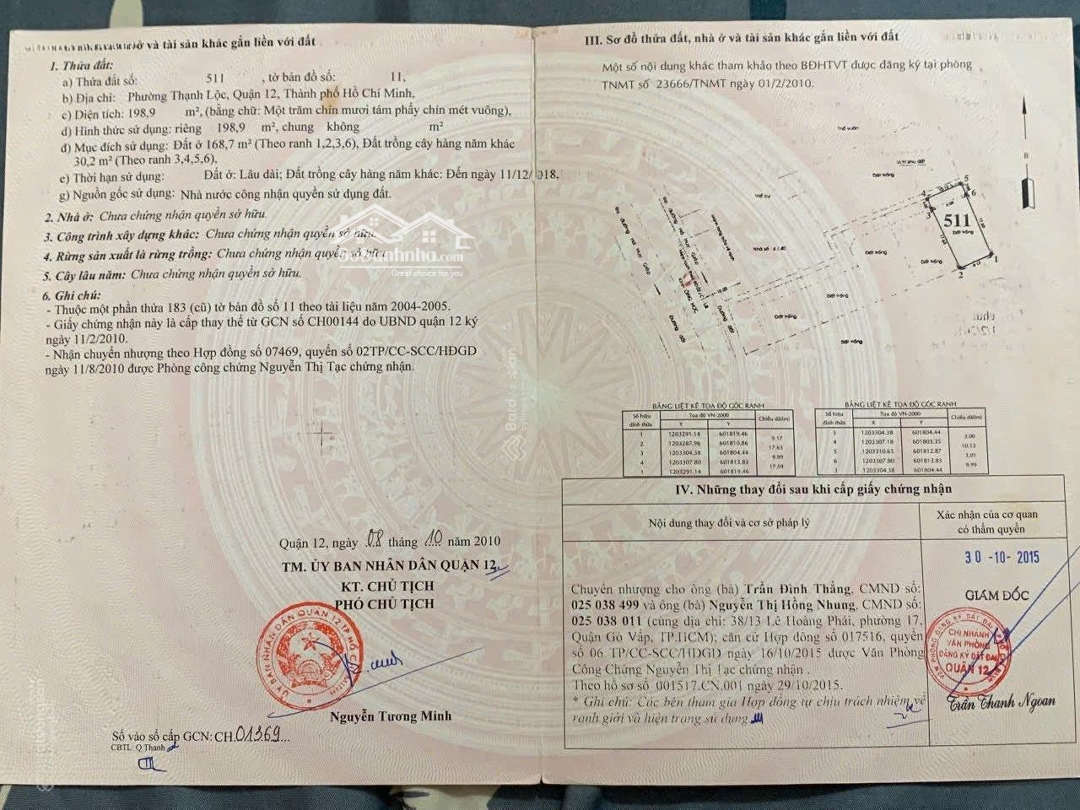 ở và tài sản khác gắn liền với đất
1. Thửa đất:
a) Thửa đất số: 511 , tờ bản đồ số: 11,
b) Địa chỉ: Phường Thạnh Lộc, Quận 12, Thành phố Hồ Chí Minh,
c) Diện tích: 198,9 m², (bằng chữ: Một trăm chín mươi tám phẩy chín mét vuông),
d) Hình thức sử dụng: riêng 198,9 m², chung không m²
đ) Mục đích sử dụng: Đất ở 168,7 m² (Theo ranh 1,2,3,6), Đất trồng cây hàng năm khác
30,2 m² (Theo ranh 3,4,5,6),
e) Thời hạn sử dụng: Đất ở: Lâu dài; Đất trồng cây hàng năm khác: Đến ngày 11/12/ 018.
g) Nguồn gốc sử dụng: Nhà nước công nhận quyền sử dụng đất.
2. Nhà ở: Chưa chứng nhận quyền sở hữu.
3. Công trình xây dựng khác: Chưa chứng nhận quyền sở hữu.
4. Rừng sản xuất là rừng trồng: Chưa chứng nhận quyền sở hữu
5. Cây lâu năm: Chưa chứng nhận quyền sở hữu.
6. Ghi chú:
- Thuộc một phần thửa 183 (cũ) tờ bản đồ số 11 theo tài liệu năm 2004-2005.
- Giấy chứng nhận này là cấp thay thế từ GCN số CH00144 do UBND quận 12 ký
ngày 11/2/2010.
- Nhận chuyển nhượng theo Hợp đồng số 07469, quyển số 02TP/CC-SCC/HĐGD
ngày 11/8/2010 được Phòng công chứng Nguyễn Thị Tạc chứng nhận.
Great choice for you
Quận 12, ngày 08 tháng 10 năm 2010
TM. ỦY BAN NHÂN DÂN QUẬN 12
KT. CHỦ TỊCH
PHÓ CHỦ TỊCH
Nguyễn Tương Minh
Số vào sổ cấp GCN: CH 01369
CBTL: Q.Thanh
III. Sơ đồ thửa đất, nhà ở và tài sản khác gắn liền với đất
Một số nội dung khác tham khảo theo BĐHTVT được đăng ký tại phòng
TNMT số 23666/TNMT ngày 01/2/2010.
B
511
BẢNG LIỆT KÊ TỌA ĐỘ GÓC RANH
Số hiệu đỉnh thửa Tọa độ VN-2000 Chiều dài(m)
X Y
1 1203291.14 601819.46
9.17
2 1203287.96 601810.86
17.63
3 1203304.38 601804.44
9.99
4 1203307.80 601813.83
17.59
1 1203291.14 601819.46
BẢNG LIỆT KÊ TỌA ĐỘ GÓC RANH
Số hiệu đỉnh thửa Tọa độ VN-2000 Chiều dài(m)
X Y
3 1203304.38 601804.44
3.00
4 1203307.18 601803.35
10.13
5 1203310.65 601812.87
3.01
6 1203307.80 601813.83
9.99
3 1203304.38 601804.44
IV. Những thay đổi sau khi cấp giấy chứng nhận
Nội dung thay đổi và cơ sở pháp lý
Xác nhận của cơ quan
có thẩm quyền
Chuyển nhượng cho ông (bà) Trần Đình Thắng, CMND số:
025 038 499 và ông (bà) Nguyễn Thị Hồng Nhung, CMND số:
025 038 011 (cùng địa chỉ: 38/13 Lê Hoàng Phái, phường 17,
Quận Gò Vấp, TP.HCM); căn cứ Hợp đồng số 017516, quyển
số 06 TP/CC-SCC/HĐGD ngày 16/10/2015 được Văn Phòng
Công Chứng Nguyễn Thị Tạc chứng nhận .
Theo hồ sơ số 001517.CN.001 ngày 29/10/2015.
* Ghi chú: Các bên tham gia Hợp đồng tự chịu trách nhiệm về
ranh giới và hiện trạng sử dụng
30 -10- 2015
GIÁM ĐỐC
CHI NHÁNH
VĂN PHÒNG
ĐĂNG KÝ ĐẤT ĐAI
QUẬN 12
Trần Thanh Ngoan